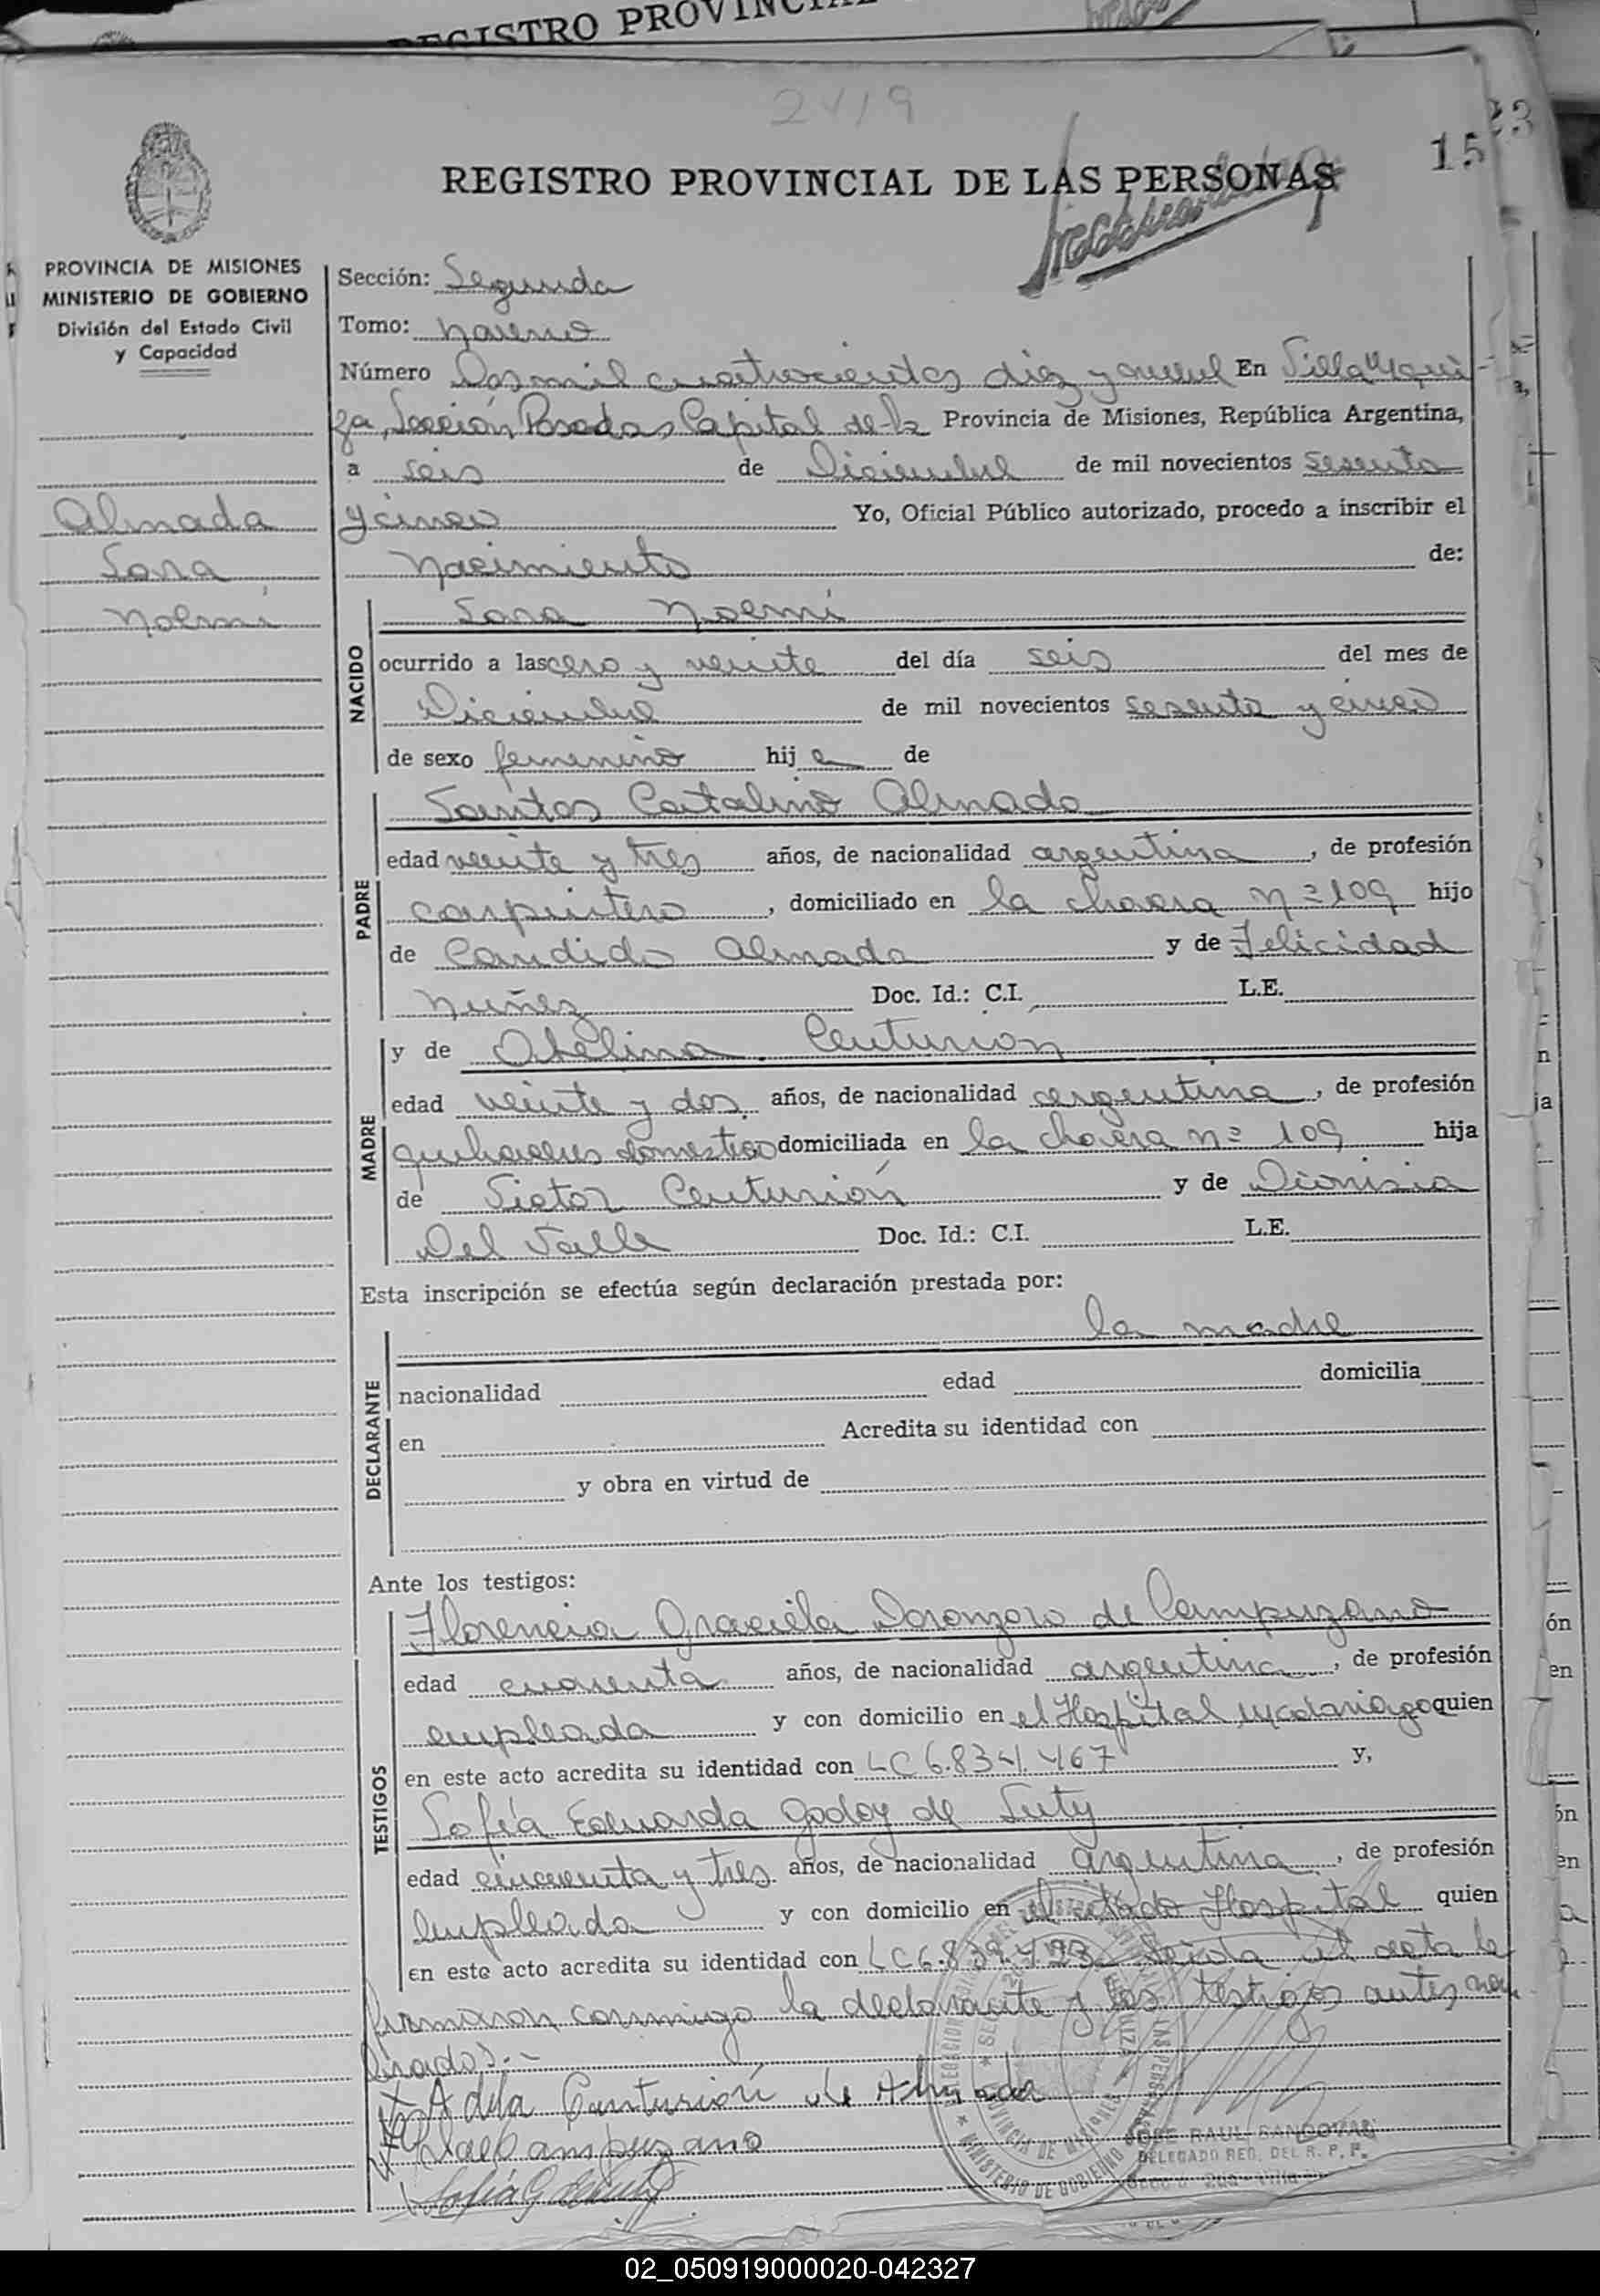 REGISTRO PROVINCIAL
2419
15
REGISTRO PROVINCIAL DE LAS PERSONAS
PROVINCIA DE MISIONES
MINISTERIO DE GOBIERNO
División del Estado Civil
y Capacidad
Almada
Sara
Noemí
Sección: Segunda
Tomo: noveno
Número Dos mil cuatrocientos diez y nueve En Villa Urqui-
za, Sección Posadas Capital de la Provincia de Misiones, República Argentina,
a seis de Diciembre de mil novecientos sesenta
y cinco Yo, Oficial Público autorizado, procedo a inscribir el
Nacimiento de:
NACIDO
Sara Noemí
ocurrido a las cero y veinte del día seis del mes de
Diciembre de mil novecientos sesenta y cinco
de sexo femenino hij a de
PADRE
Santos Catalino Almada
edad veinte y tres años, de nacionalidad argentina, de profesión
carpintero, domiciliado en la chacra nº 109 hijo
de Candido Almada y de Felicidad
Nuñez Doc. Id.: C.I. L.E.
MADRE
y de Otelina Centurion
edad veinte y dos años, de nacionalidad argentina, de profesión
quehaceres domesticos domiciliada en la chacra nº 109 hija
de Victor Centurión y de Dionisia
Del Valle Doc. Id.: C.I. L.E.
Esta inscripción se efectúa según declaración prestada por:
DECLARANTE
la madre
nacionalidad edad domicilia
en Acredita su identidad con
y obra en virtud de
Ante los testigos:
TESTIGOS
Florencia Graciela Doronzoro de Campuzano
edad cuarenta años, de nacionalidad argentina, de profesión
empleada y con domicilio en el Hospital Madariaga quien
en este acto acredita su identidad con LC 6.834.467 y,
Sofía Eduarda Godoy de Suty
edad cincuenta y tres años, de nacionalidad argentina, de profesión
empleada y con domicilio en el citado Hospital quien
en este acto acredita su identidad con LC 6.839.423 Leida el acta la
firmaron conmigo la declarante y los testigos antes nom
brados.-
Adela Centurión de Almada
Campuzano
JOSE RAUL SANDOVAL
DELEGADO REG. DEL R. P. P.
MINISTERIO DE GOBIERNO
PROVINCIA DE MISIONES
02_050919000020-042327